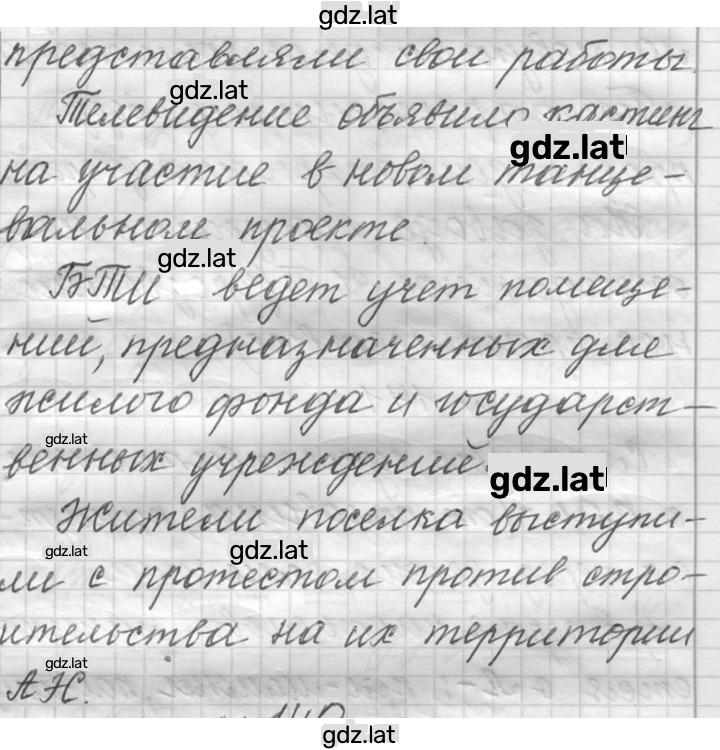 gdz.lat
представляли свои работы.
gdz.lat
Телевидение объявило кастинг
gdz.lat
на участие в новом танце-
вальном проекте.
gdz.lat
БТИ ведет учет помеще-
ний, предназначенных для
жилого фонда и государст-
gdz.lat
венных учреждений.
gdz.lat
Жители поселка выступи-
gdz.lat
gdz.lat
ли с протестом против стро-
ительства на их территории
gdz.lat
АН.
gdz.lat